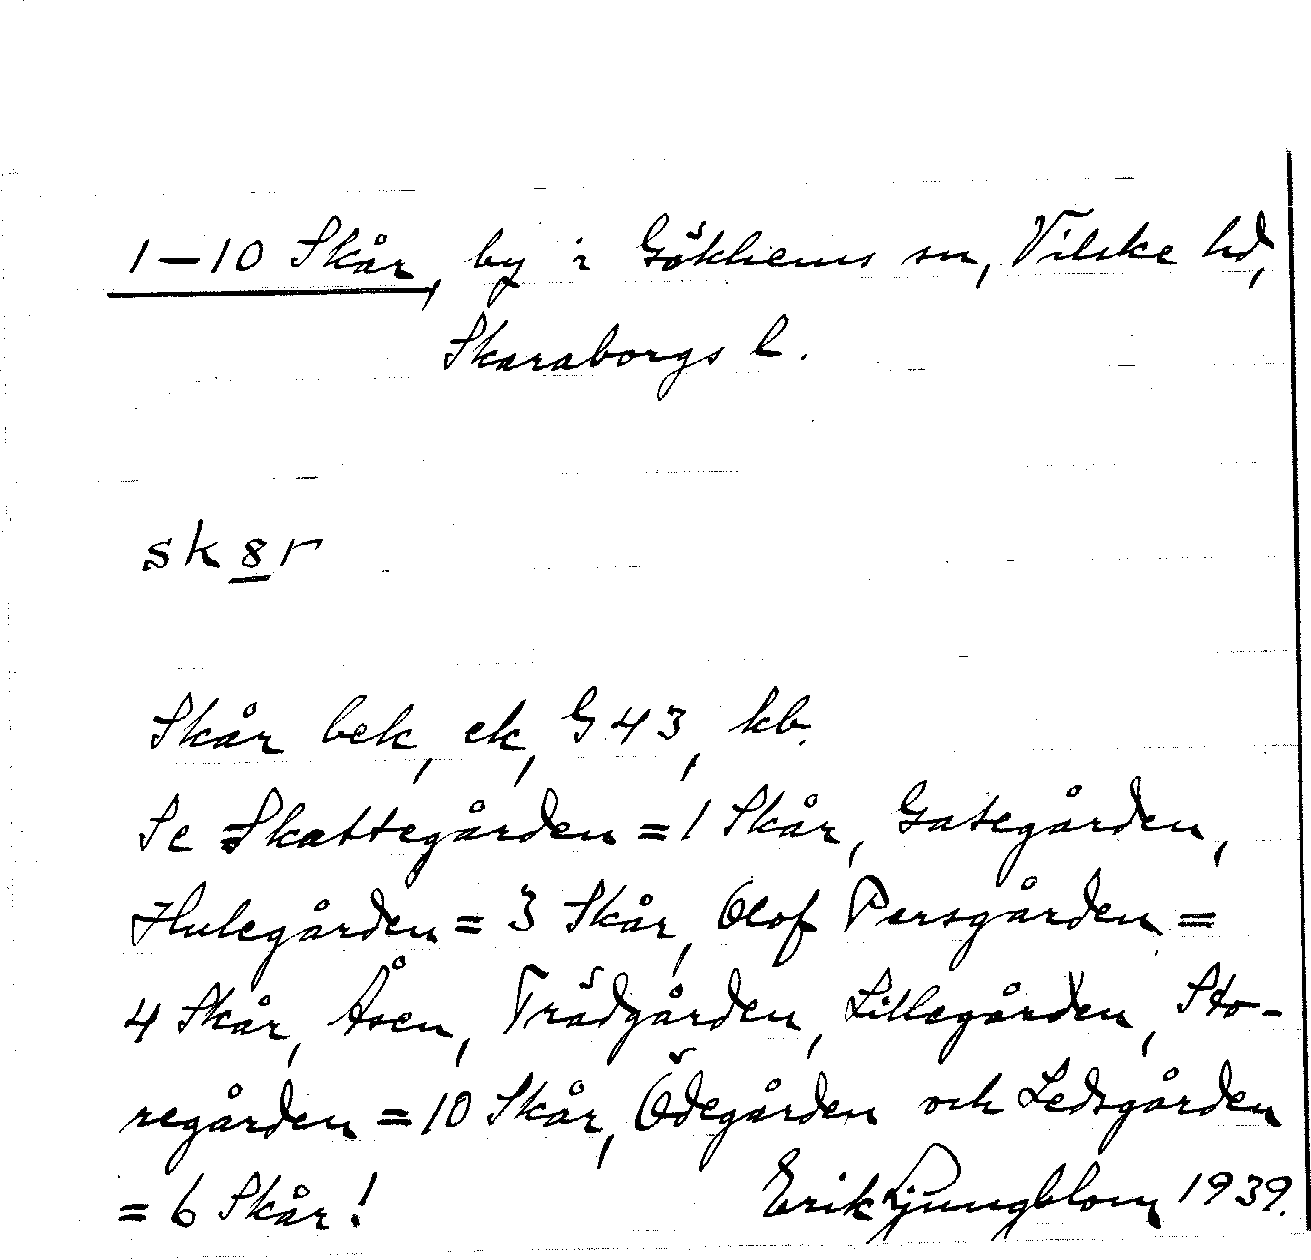 1–10 Skår, by i Gökhems sn, Vilske hd,
Skaraborgs l.
sk8r
Skår bek, ek, G 43, kb.
Se Skattegården = 1 Skår, Gategården,
Hulegården = 3 Skår, Olof Persgården =
4 Skår, Åsen, Trädgården, Lillegården, Sto-
regården = 10 Skår, Ödegården och Ledsgården
= 6 Skår! Erik Ljungblom 1939.